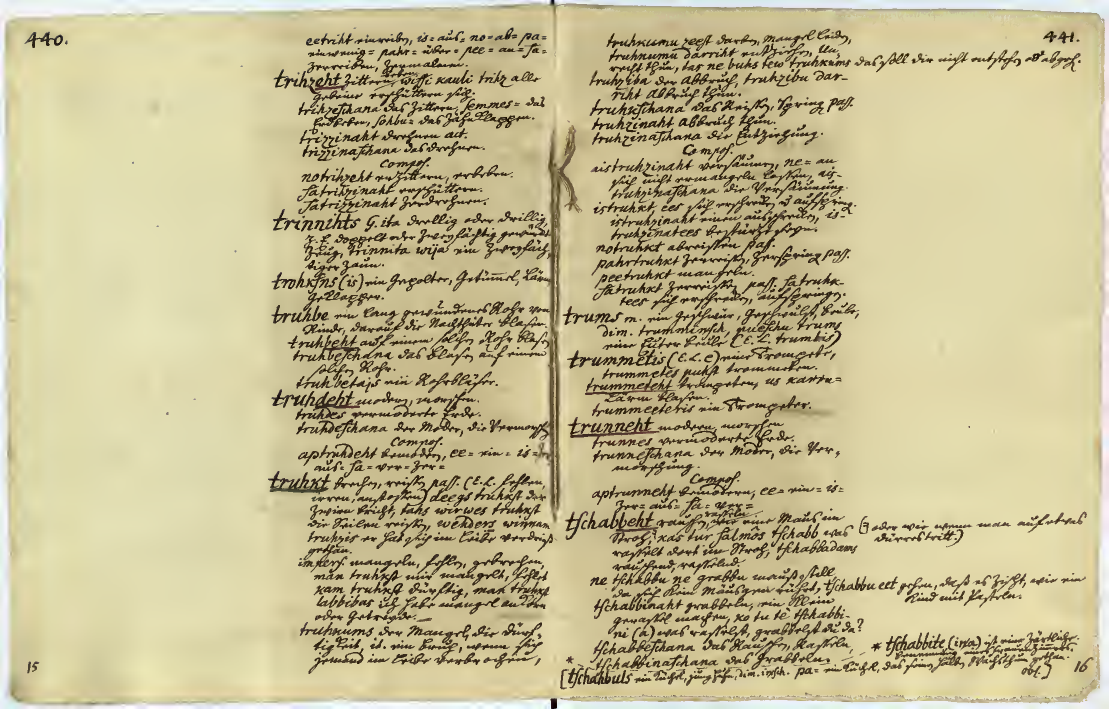 440.
eetriht einreiben, is= aus= no= ab= pa=
ein wenig= pahr= über= pee= an= sa=
zerreiben, zermalmen.
trihzeht zittern, beben, wissi kauli trihz alle
Gebeine erschüttern sich.
trihzeschana das Zittern, semmes= das
Erdbeben, sohbu= das Zähnklappen.
trizzinaht drehnen act.
trizzinaschana das drehnen.
Compos.
notrihzeht erzittern, erbeben.
satrihzinaht erschüttern.
satrizzinaht zerdrehnen.
trinnihts G. ita drellig oder drillig
z. E. doppelt oder zweyfächtig
Zeug, trinnita wija ein zweyfäch,
tiger Zaun.
trohksns (is) ein Gepolter, Getümmel, Lärm
Geklapper.
truhbe ein lang gewundenes Rohr von
Rinde, darauf die Nachthüter blasen.
truhbeht auf einem solchen Rohr blasen
truhbeschana das Blasen auf einem
solchen Rohr.
truhbetajs ein Rohrbläser.
truhdeht modern, morschen.
truhdes vermoderte Erde.
truhdeschana der Moder, die Vermorsch
Compos.
aptruhdeht bemodern, ee= ein= is=
aus= sa= ver= zer=
truhkt brechen, reissen pass. (E. L. fehlen,
irren, anstossen) deegs truhkst der
Zwirn bricht, tahs wirwes truhkst
die Seilen reissen, wehders winnam
truhzis er hat sich im Leibe verdreist
gethan.
impers. mangeln, fehlen, gebrechen,
man truhkst mir mangelt, fehlt
kam truhkst dürftig, man truhkst
labbibas ich habe mangel an
oder Getreide.
truhkums der Mangel, die Dürf=
tigkeit, it. ein Bruch, wenn sich
jemand im Leibe verbrochen,
15
441.
truhkumu zeest darben, mangel leiden,
truhkumu darriht entziehen, Un,
recht thun, tas ne buhs tew truhkums das soll dir nicht entstehen od abgeh.
truhziba der Abbruch, truhzibu dar=
riht Abbruch thun.
truhkschana das Reissen, Spring pass.
truhzinaht Abbruch thun.
truhzinaschana die Entziehung.
Compos.
aistruhzinaht versäumen, ne= an
sich nicht ermangeln lassen, ais=
truhzinaschana die Versäumung.
istruhkt, ees sich erschrecken, aufspring.
istruhzinaht einen erschrecken, is=
truhzinatees bestürzt seyn.
notruhkt abreissen pass.
pahrtruhkt zerreissen, zerspring pass.
peetruhkt mangeln.
satruhkt zerreissen pass. satruhk=
tees sich erschrecken, aufspringen.
trums m. ein Geschwür, Geschwulst, Beule,
dim. trumminsch, pueschu trums
eine Eiter Beule (E. L. trumbis)
trummetis (E. L. e) eine Trompete,
trummetes puhst trommeten.
trummeteht trompeten, us karru=
Lärm blasen.
trummeeteris ein Trompeter.
trunneht modern, morschen
trunnes vermoderte Erde.
trunneschana der Moder, die Ver,
morschung.
Compos.
aptrunneht bemodern, ee= ein= is=
zer= aus= sa= ver=
tschabbeht rauschen, rasseln, wie eine Maus im
Stroh, kas tur salmôs tschabb was (oder wie wenn man auf etwas
dürres tritt.)
rasselt dort im Stroh, tschabbadams
rauschend, rasselnd.
ne tschabbu ne grabbu mausstille
da sich kein Mäusgen rührt, tschabbu eet gehen, daß es zischt, wie ein
Kind mit Pasteln.
tschabbinaht grabbeln, ein klein
gerassel machen, ko tu te tschabbi-
ni (a) was rasselst, grabbelst du da?
tschabbeschana das Rauschen, Rasseln.
* tschabbinaschana das Grabbeln.
* tschabbite (ina) ist eine zärtliche
Benennung
[tschahbuls ein Küchl, jung Huhn, dim. insch. pa= ein Küchl, das seinen halben Wachsthum gethan.
obl.]
16